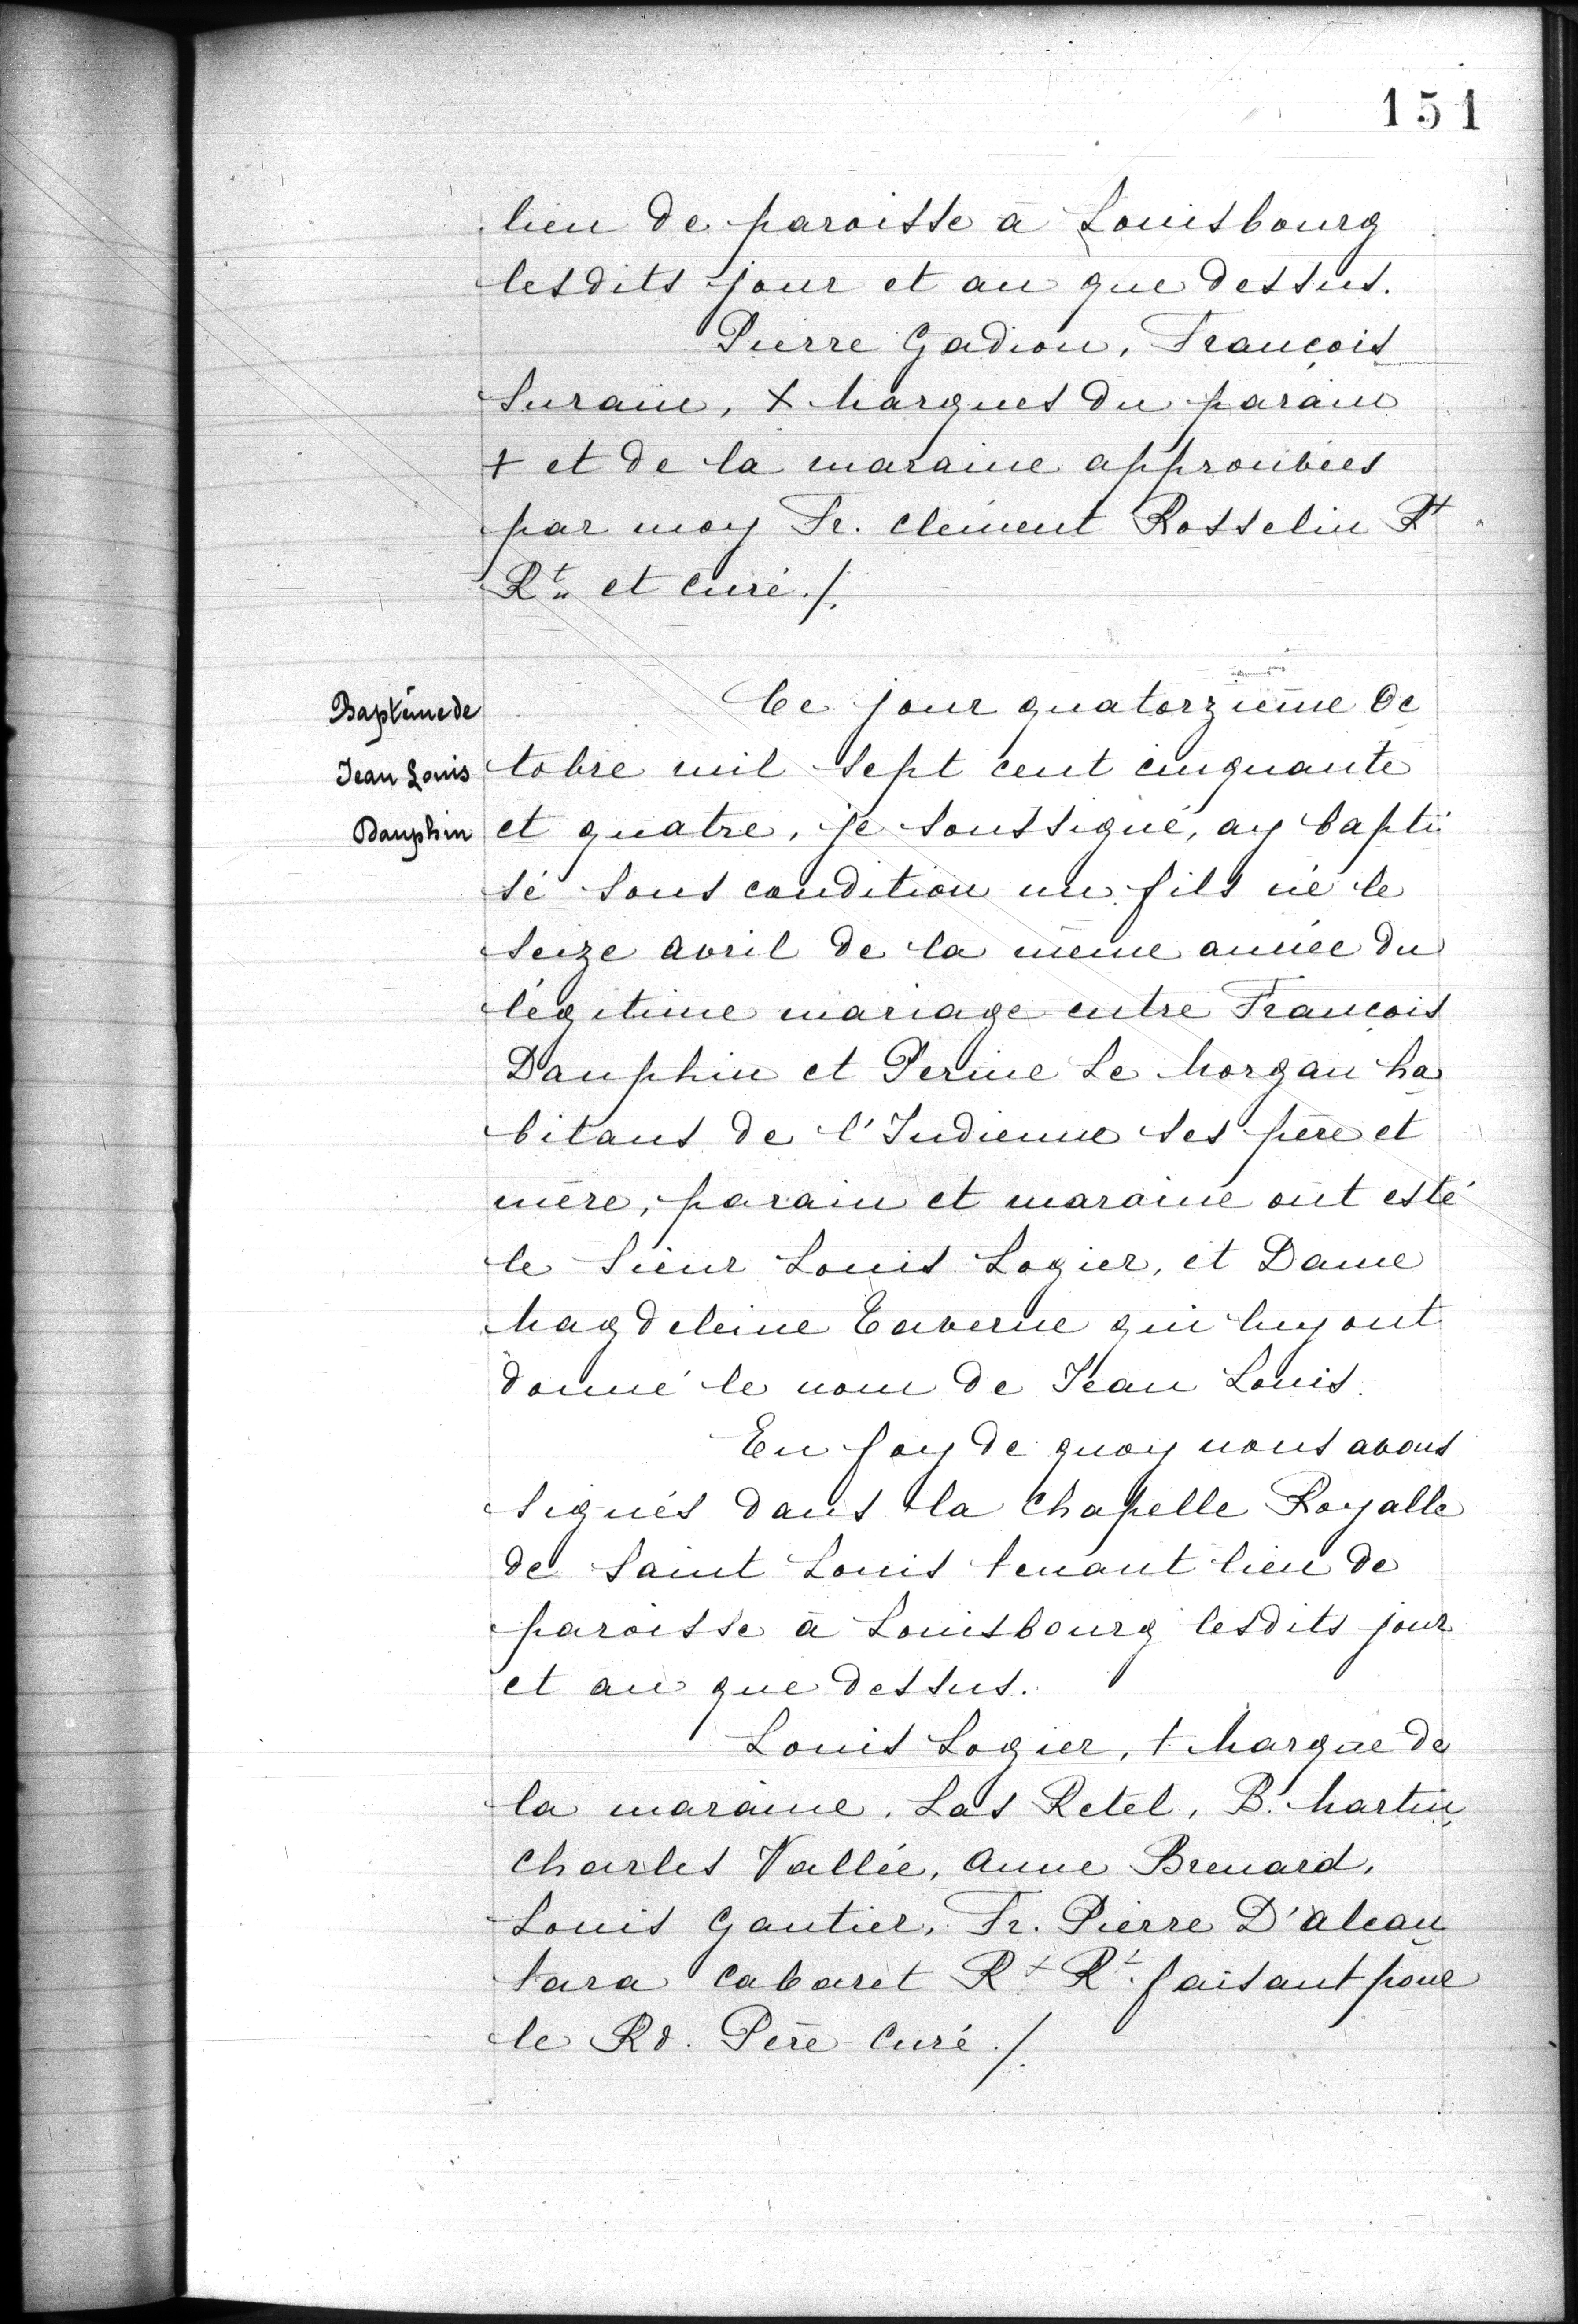 151
lieu de paroisse à Louisbourg
lesdits jour et an que dessus.
Pierre Gadion, François
Surain, + Marques du parain
+ et de la maraine approuvées
par moy Fr. Clément Rosselin Pt
Rt et curé ./.
Baptême de
Jean Louis
Dauphin
Ce jour quatorzième Oc
tobre mil sept cent cinquante
et quatre, je soussigné, ay bapti
sé sous condition un fils né le
seize avril de la même année du
légitime mariage entre François
Dauphin et Perine Le Morgan ha
bitans de l'Indienne ses père et
mère, parain et maraine ont esté
le Sieur Louis Logier, et Dame
Magdeleine Taverne qui luy ont
donné le nom de Jean Louis.
En foy de quoy nous avons
signés dans la Chapelle Royalle
de Saint Louis tenant lieu de
paroisse à Louisbourg lesdits jour
et an que dessus.
Louis Logier, + Marque de
la maraine, Las Retel, B. Martin
Charles Vallée, Anne Brenard,
Louis Gautier, Fr. Pierre D'alcan
tara Cabaret Rt Rt. faisant pour
le Rd. Père Curé ./.